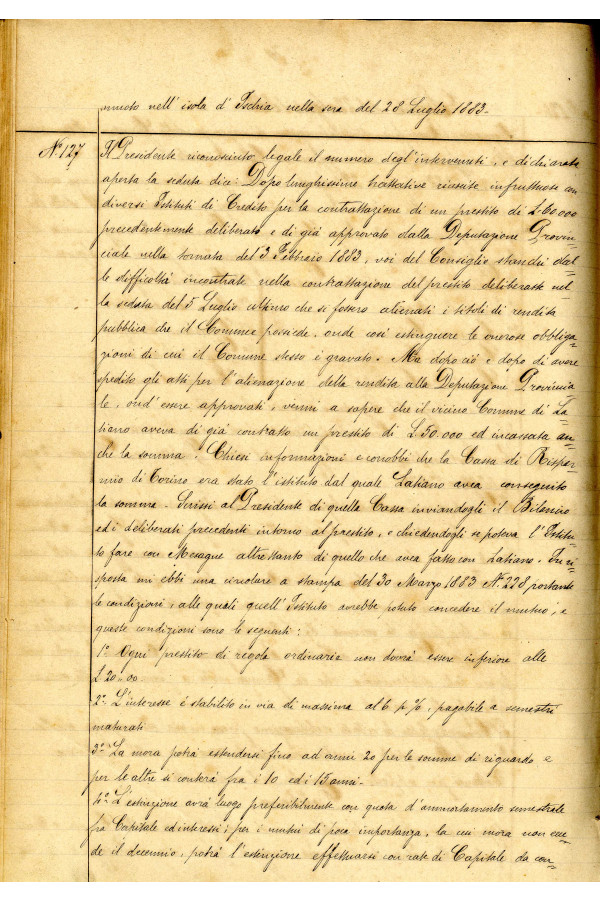 muoto nell' isola d' Ischia nella sera del 28 Luglio 1883.-
N. 127
Il Presidente riconosciuto legale il numero degl'intervenuti, e dichiarata
aperta la seduta dice: Dopo lunghissime trattative riuscite infruttuose con
diversi Istituti di Credito per la contrattazione di un prestito di £ 60.000
precedentemente deliberato, e di già approvato dalla Deputazione Provin=
ciale nella tornata del 3 Febbraio 1883, voi del Consiglio stanchi dal=
le difficoltà incontrate nella contrattazione del prestito deliberaste nel=
la seduta del 5 Luglio ultimo che si fossero alienati i titoli di rendita
pubblica che il Comune possiede, onde così estinguere le onerose obbliga=
zioni di cui il Comune stesso è gravato. Ma dopo ciò e dopo di avere
spedito gli atti per l'alienazione della rendita alla Deputazione Provincia
le, ond'essere approvati, venni a sapere che il vicino Comune di La=
tiano aveva di già contratto un prestito di £ 50.000 ed incassata an=
che la somma. Chiesi informazioni e conobbi che la Cassa di Rispar=
mio di Torino era stato l'istituto dal quale Latiano avea conseguito
la somma. Scrissi al Presidente di quella Cassa inviandogli il Bilancio
ed i deliberati precedenti intorno al prestito, e chiedendogli se poteva l'Istitu=
to fare con Mesagne altrettanto di quello che avea fatto con Latiano. In ri=
sposta mi ebbi una circolare a stampa del 30 Marzo 1883 N. 228 portante
le condizioni, alle quali quell'Istituto avrebbe potuto concedere il mutuo, e
queste condizioni sono le seguenti:
1º Ogni prestito di regola ordinaria non dovrà essere inferiore alle
2º L'interesse è stabilito in via di massima al 6 p %, pagabile a semestri
maturati
3º La mora potrà estendersi fino ad anni 20 per le somme di riguardo e
per le altre si conterà fra i 10 ed i 15 anni.-
4º L'estinzione avrà luogo preferibilmente con quota d'ammortamento semestrale
fra Capitale ed interessi; per i mutui di poca importanza, la cui mora non ecce=
de il decennio, potrà l'estinzione effettuarsi con rate di Capitale da con=